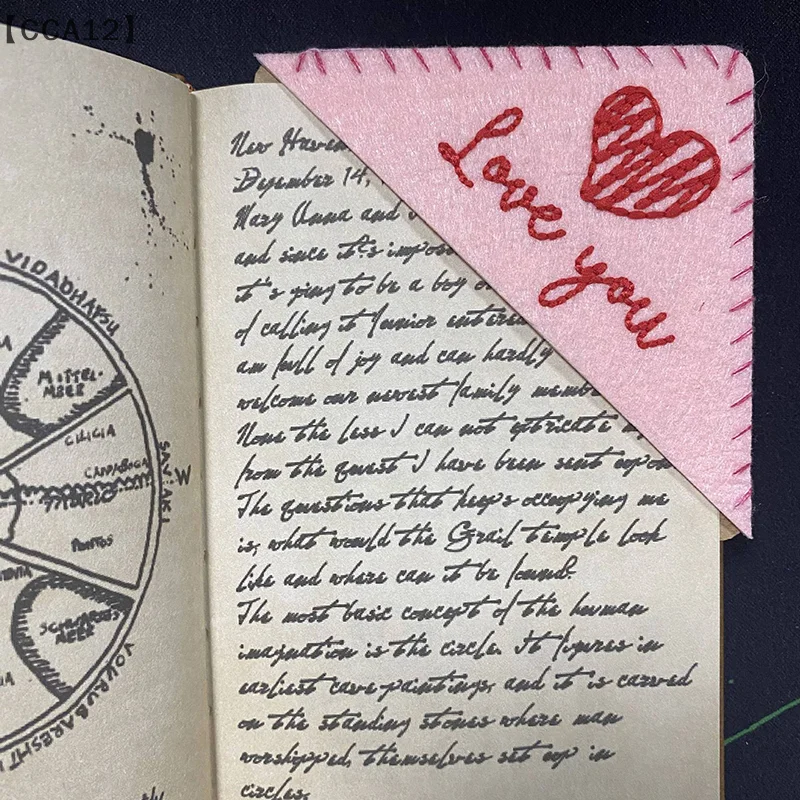 【CCA12】
VIDADHAFSU
MITTEL-
MEER
CILICIA
CAPPADOCIA
PONTOS
SAVAHI
W
SCHWARZES
MEER
VOURUBARESHTI
Love you
New Haven
Desember 14,
Mary Anna and
and since it's imposs
it's going to be a boy or
of calling it Junior enterea
am full of joy and can hardly
welcome our newest family membe
None the less I can not extricate
from the quest I have been sent upon
The questions that keeps occupying me
is, what would the Grail temple look
like and where can it be found?
The most basic concept of the human
imagination is the circle. It figures in
earliest cave-paintings, and it is carved
on the standing stones where man
worshipped, themselves set up in
circles.